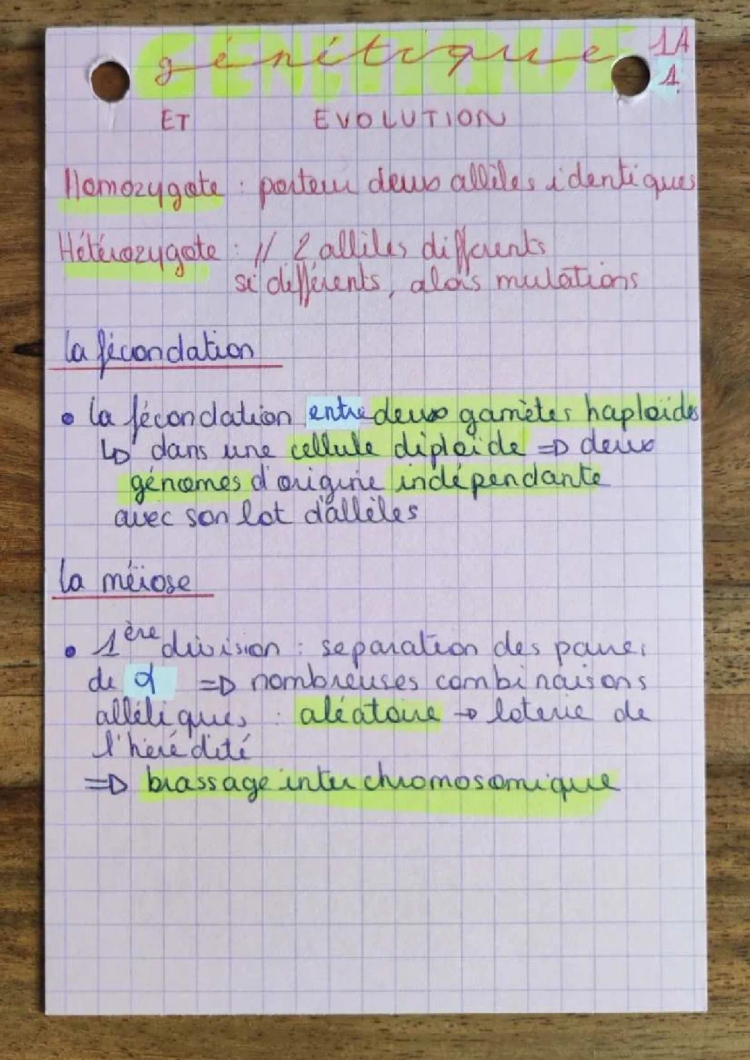 GENETIQUE
génétique
1A
1
ET EVOLUTION
Homozygote : porteur deux allèles identiques
Hétérozygote : // 2 allèles différents
si différents, alors mutations
la fécondation
• la fécondation entre deux gamètes haploïdes
↳ dans une cellule diploïde => deux
génomes d'origine indépendante
avec son lot d'allèles
la méiose
• 1ère division : separation des paires
de => nombreuses combinaisons
alléliques : aléatoire → loterie de
l'hérédité
=> brassage interchromosomique